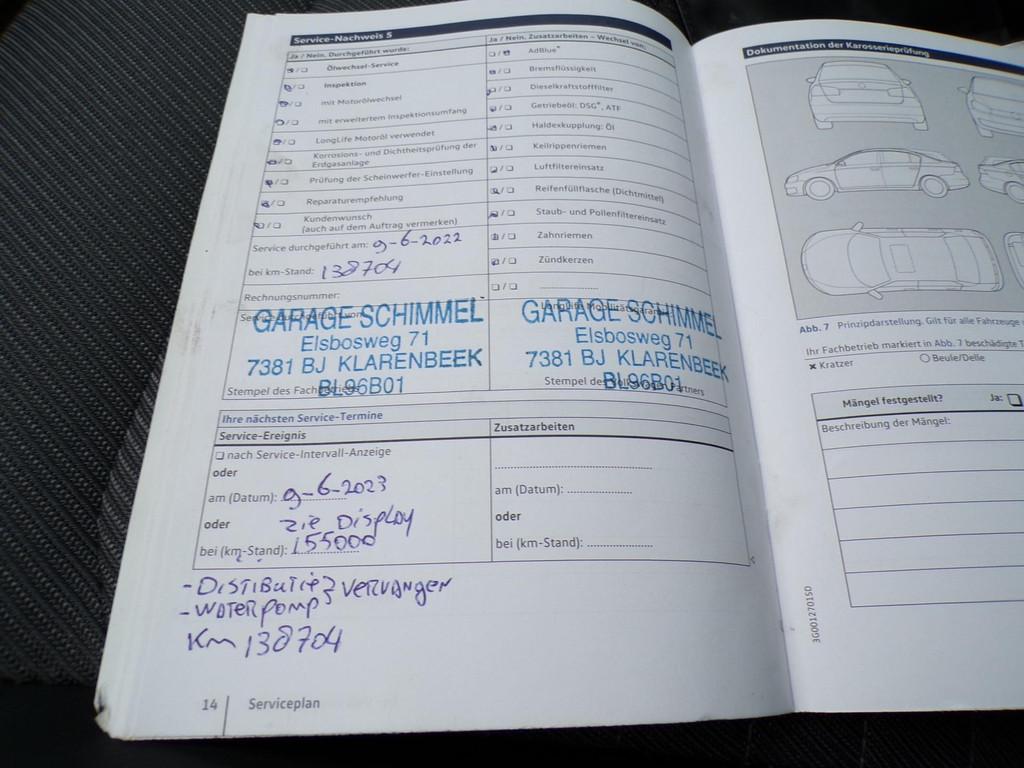 Service-Nachweis 5
Ja / Nein, Durchgeführt wurde:
/ Ölwechsel-Service
/ Inspektion
/ mit Motorölwechsel
/ mit erweitertem Inspektionsumfang
/ LongLife Motoröl verwendet
/ Korrosions- und Dichtheitsprüfung der
Erdgasanlage
/ Prüfung der Scheinwerfer-Einstellung
/ Reparaturempfehlung
/ Kundenwunsch
(auch auf dem Auftrag vermerken)
Service durchgeführt am: 9-6-2022
bei km-Stand: 138704
Rechnungsnummer:
Service durchgeführt von:
GARAGE SCHIMMEL
Elsbosweg 71
7381 BJ KLARENBEEK
BL96B01
Stempel des Fachbetriebs
Ja / Nein, Zusatzarbeiten – Wechsel von:
/ AdBlue®
/ Bremsflüssigkeit
/ Dieselkraftstofffilter
/ Getriebeöl: DSG®, ATF
/ Haldexkupplung: Öl
/ Keilrippenriemen
/ Luftfiltereinsatz
/ Reifenfüllflasche (Dichtmittel)
/ Staub- und Pollenfiltereinsatz
/ Zahnriemen
/ Zündkerzen
/ ....................
LongLife Mobilitätsgarantie
GARAGE SCHIMMEL
Elsbosweg 71
7381 BJ KLARENBEEK
BL96B01
Stempel des Volkswagen Partners
Ihre nächsten Service-Termine
Service-Ereignis
nach Service-Intervall-Anzeige
oder
am (Datum): 9-6-2023
oder zie Display
bei (km-Stand): 155000
Zusatzarbeiten
am (Datum): ....................
oder
bei (km-Stand): ....................
- DISTIBUTIE } vervangen
- WATERPOMP
Km 138704
14 | Serviceplan
Dokumentation der Karosserieprüfung
Abb. 7 Prinzipdarstellung. Gilt für alle Fahrzeuge
Ihr Fachbetrieb markiert in Abb. 7 beschädigte
x Kratzer O Beule/Delle
Mängel festgestellt? Ja:
Beschreibung der Mängel:
3G0012701SD